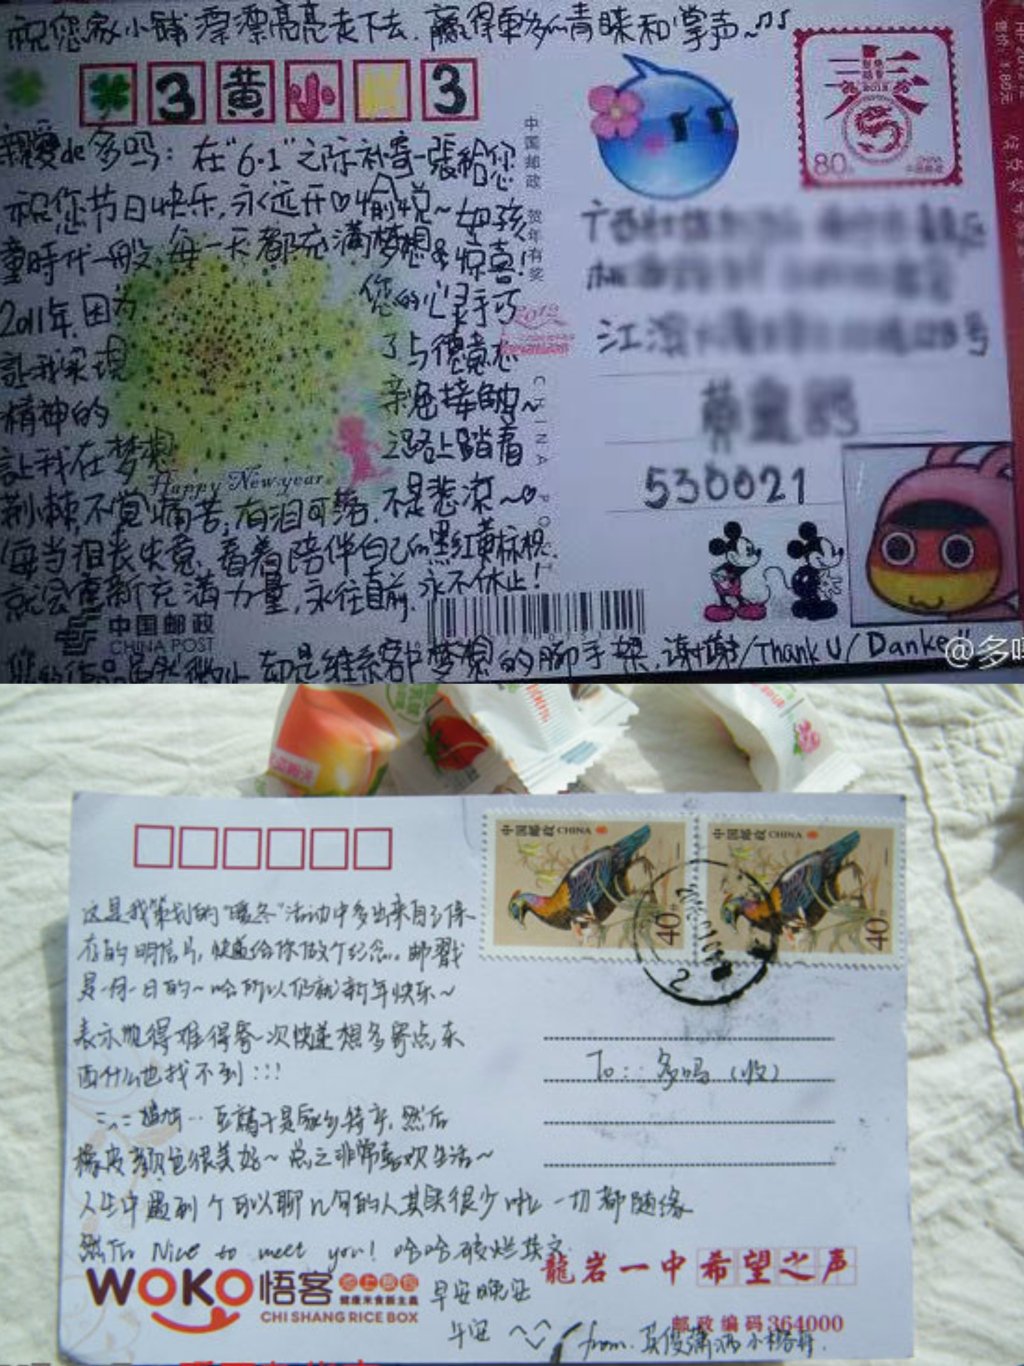 祝您家小铺漂漂亮亮走下去,赢得更多的青睐和掌声~
3黄小 3
親愛de多吗:在"6·1"之际补寄一張給您
祝您节日快乐,永远开♡愉悦~如孩
童時代一般,每一天都充满梦想&惊喜!
2011年,因为 您的心灵手巧
让我实现 了与德意志
精神的 亲密接触~
让我在梦想 之路上踏着
Happy New year
荆棘,不觉痛苦,有泪可落,不是悲凉~
每当沮丧失意,看着陪伴自己的黑红黄标税
就会重新充满力量,永往直前,永不休止!
中国邮政
CHINA POST
却是维系客户梦想的脚手架,谢谢/Thank U/Danke
中国邮政 贺年有奖
2012
CHINA POST
春
2012
80
江滨 号
530021
@多吗
中国邮政 CHINA
40
中国邮政 CHINA
40
这是我策划的"暖冬"活动中多出来自了保
存的明信片,快递给你做个纪念。邮戳
是一月一日的~哈所以仍就新年快乐~
表示觉得难得寄一次快递想多寄点东
西什么也找不到:::
豆腐干是家乡特产,然后
橡皮颜色很美好~总之非常喜欢生活~
人生中遇到个可以聊几句的人其实很少啦 一切都随缘
然后 Nice to meet you! 哈哈破烂英文
早安晚安
午安
To: 多吗(收)
WOKO悟客 池上飯包
健康米食新主義
CHI SHANG RICE BOX
龍岩一中希望之声
邮政编码364000
from.